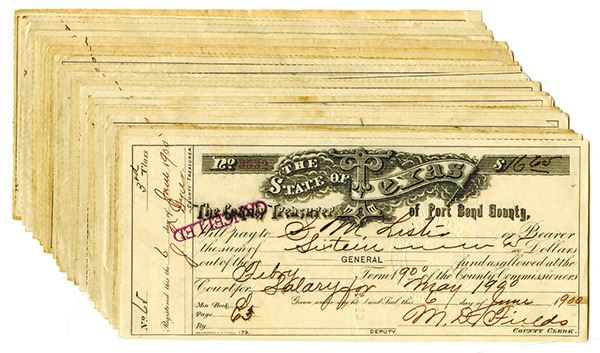 No 3532 THE STATE OF Texas $16.65
The County Treasurer of Fort Bend County,
CANCELLED
Will pay to S M Lister or Bearer
the sum of Sixteen 65 Dollars
out of the GENERAL fund as allowed at the
Feby Term 1900 of the County Commissioners
Court for Salary for May 1900
Min Book E Given under my hand and Seal this 6 day of June 1900
Page 63 M. D. Fields
By 179. DEPUTY. COUNTY CLERK.
No 65 3rd Class
Registered this the 6 day of June 1900
COUNTY TREASURER.